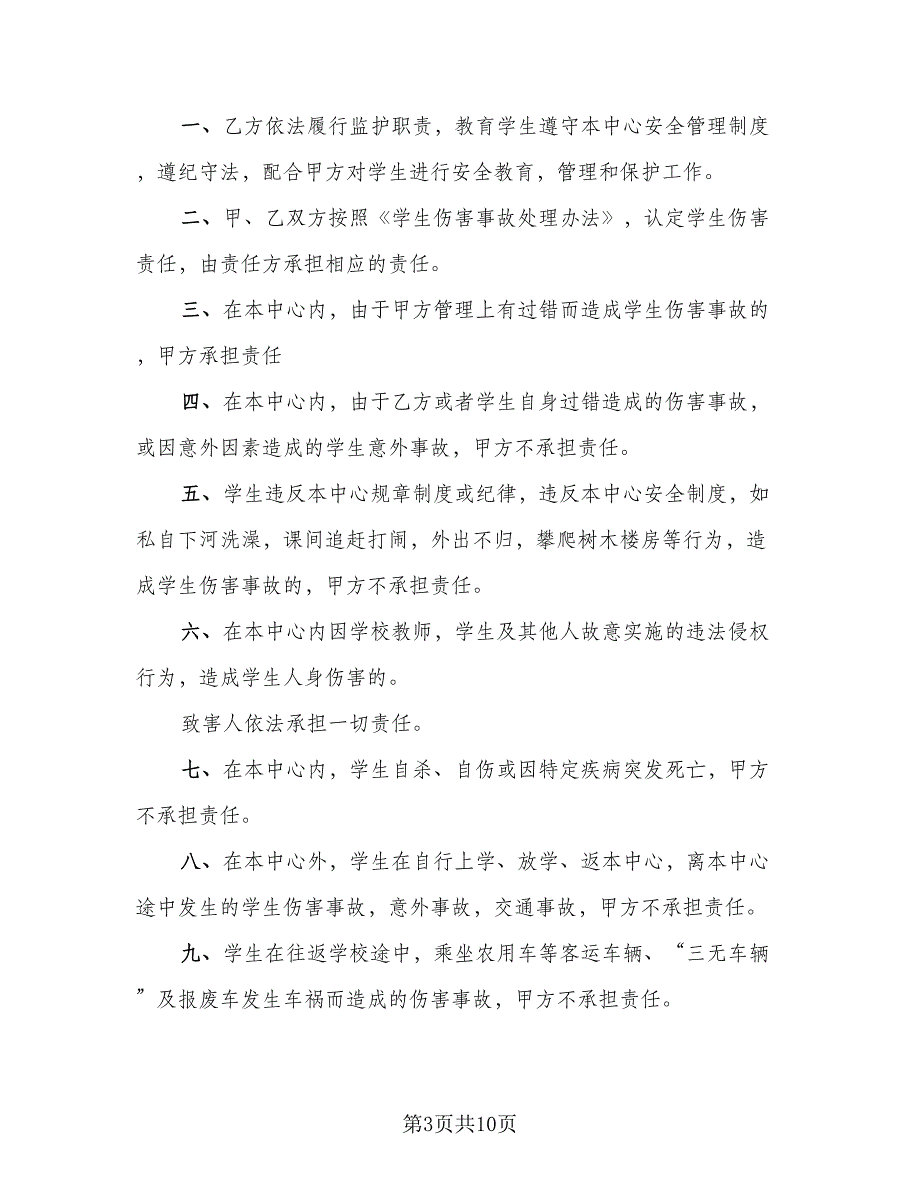 一、乙方依法履行监护职责，教育学生遵守本中心安全管理制度
，遵纪守法，配合甲方对学生进行安全教育，管理和保护工作。
二、甲、乙双方按照《学生伤害事故处理办法》，认定学生伤害
责任，由责任方承担相应的责任。
三、在本中心内，由于甲方管理上有过错而造成学生伤害事故的
，甲方承担责任
四、在本中心内，由于乙方或者学生自身过错造成的伤害事故，
或因意外因素造成的学生意外事故，甲方不承担责任。
五、学生违反本中心规章制度或纪律，违反本中心安全制度，如
私自下河洗澡，课间追赶打闹，外出不归，攀爬树木楼房等行为，造
成学生伤害事故的，甲方不承担责任。
六、在本中心内因学校教师，学生及其他人故意实施的违法侵权
行为，造成学生人身伤害的。
致害人依法承担一切责任。
七、在本中心内，学生自杀、自伤或因特定疾病突发死亡，甲方
不承担责任。
八、在本中心外，学生在自行上学、放学、返本中心，离本中心
途中发生的学生伤害事故，意外事故，交通事故，甲方不承担责任。
九、学生在往返学校途中，乘坐农用车等客运车辆、“三无车辆
”及报废车发生车祸而造成的伤害事故，甲方不承担责任。
第3页共10页